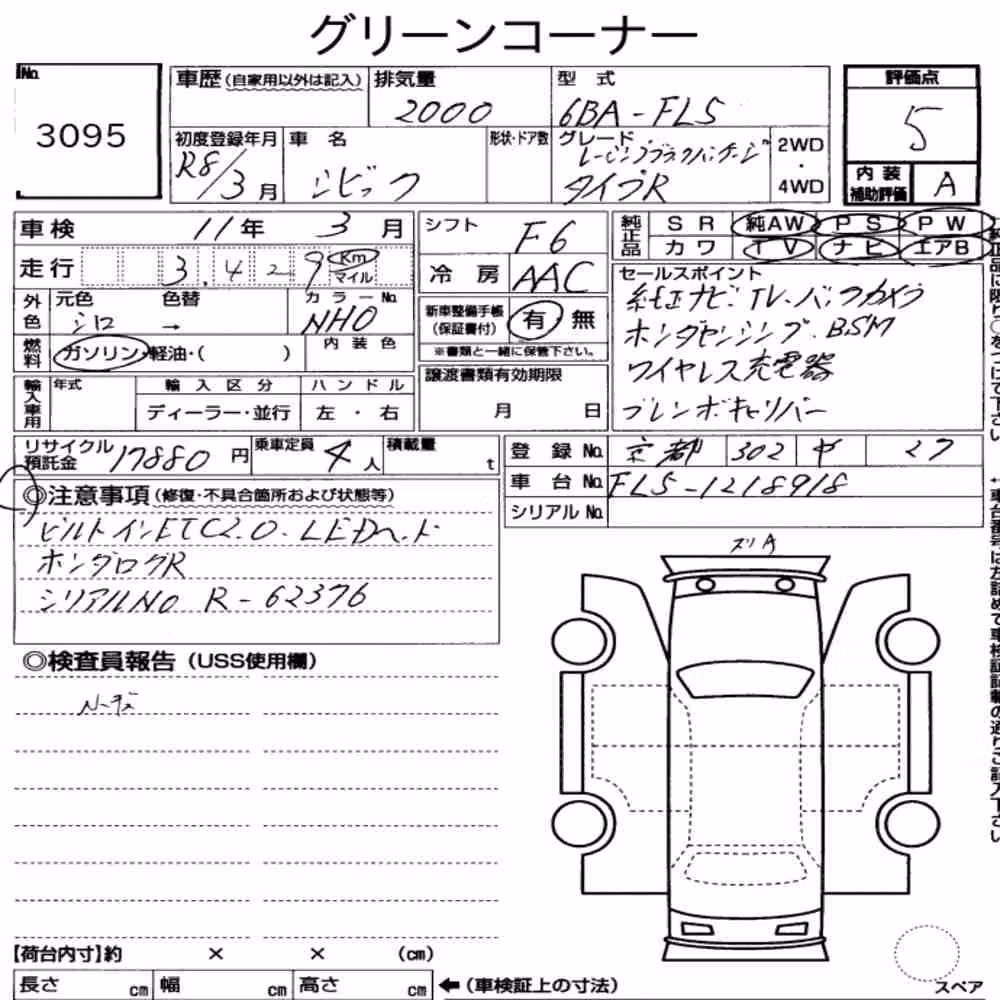 グリーンコーナー
No. 3095
車歴 (自家用以外は記入)
排気量 2000
型 式 6BA-FL5
評価点 5
初度登録年月 R8/3月
車 名 シビック
形状・ドア数
グレード レーシングブラックパッケージ タイプR
2WD・4WD
内装補助評価 A
車検 11年 3月
シフト F6
純正品 SR 純AW PS PW
カワ TV ナビ エアB
走行 3,429 Km マイル
冷 房 AAC
セールスポイント
純正ナビ・TV・バックカメラ
ホンダセンシング・BSM
ワイヤレス充電器
ブレンボキャリパー
外色 元色 シロ → 色替
カラーNo. NH0
新車整備手帳 (保証書付) 有 無
※書類と一緒に保管下さい。
燃料 ガソリン・軽油・( )
内 装 色
譲渡書類有効期限
月 日
輸入車用 年式 輸 入 区 分 ハ ン ド ル
ディーラー・並行 左 ・ 右
リサイクル預託金 17880 円
乗車定員 4人
積載量 t
登 録 No. 京都 302 27
車 台 No. FL5-1218918
シリアル No.
◎注意事項 (修復・不具合箇所および状態等)
ビルトインETC2.0・LEDヘッド
ホンダログR
シリアルNO R-62376
ズリA
◎検査員報告 (USS使用欄)
【荷台内寸】約 × × (cm)
長さ cm 幅 cm 高さ cm
←(車検証上の寸法)
スペア